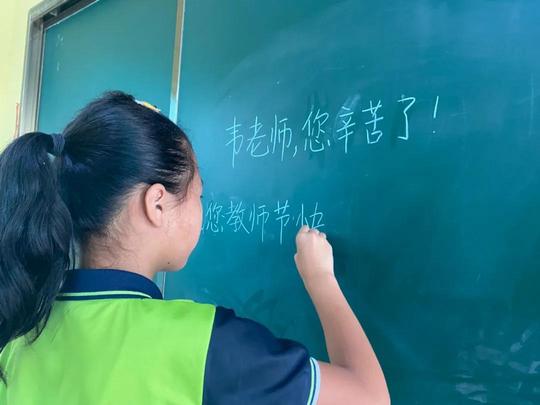 韦老师,您辛苦了!
您教师节快